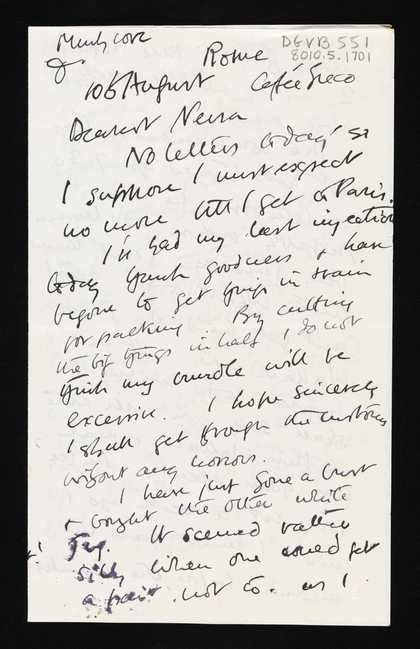 Much love
J
DEVB 551
8010.5.1701
Rome
10th August Caffè Greco
Dearest Nessa
No letters today so
I suppose I must expect
no more till I get to Paris.
I've had my last injection
today thank goodness & have
begun to get things in train
for packing. By cutting
the big things in half, I do not
think my bundle will be
excessive. I hope sincerely
I shall get through the customs
without any horrors.
I have just gone a bust
& bought the other white
jug. It seemed rather
silly when one could get
a pair not to. as I